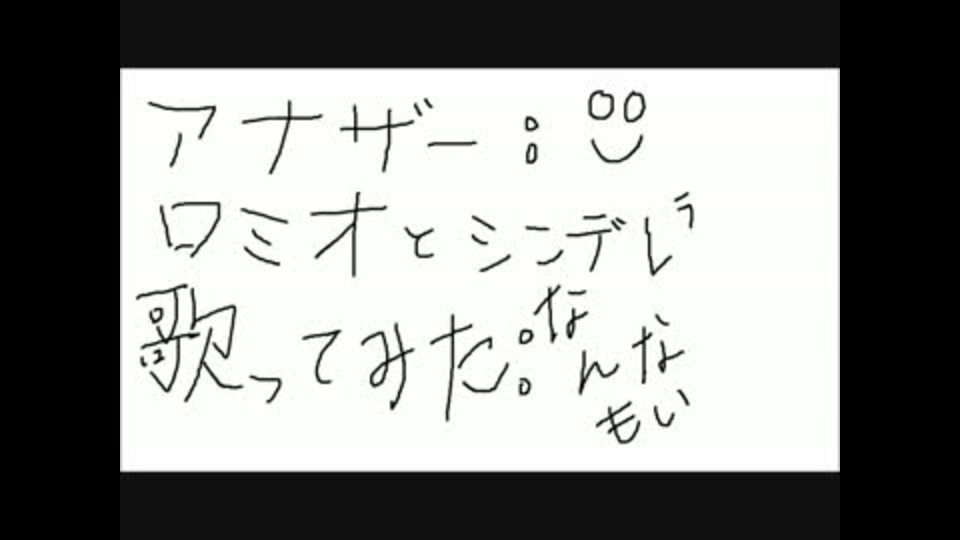 アナザー:
ロミオとシンデレラ
歌ってみた:なんもない